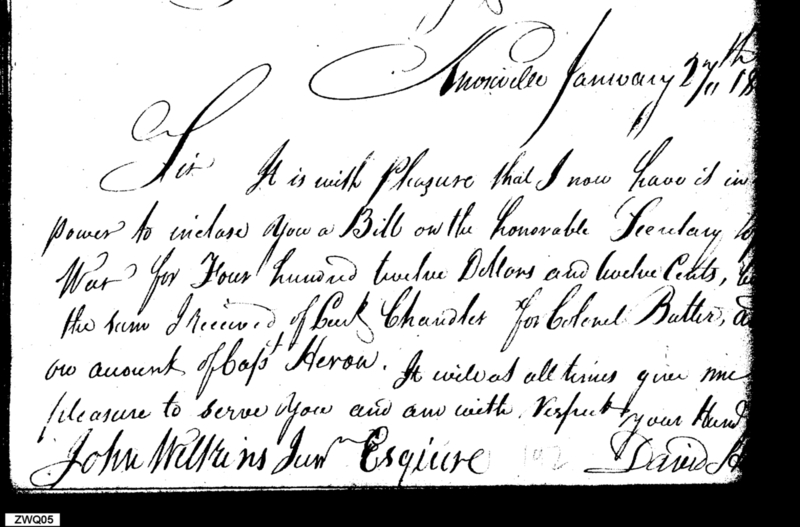 Knoxville January 27th 18
Sir It is with pleasure that I now have it in
power to inclose you a Bill on the honorable Secretary of
War for Four hundred twelve Dollars and twelve Cents,
the sum I received of Chandler for Colonel Butler,
on account of Capt Heron. It will at all times give me
pleasure to serve you and am with respect your Humb
John Wilkins Junr Esquire David
ZWQ05